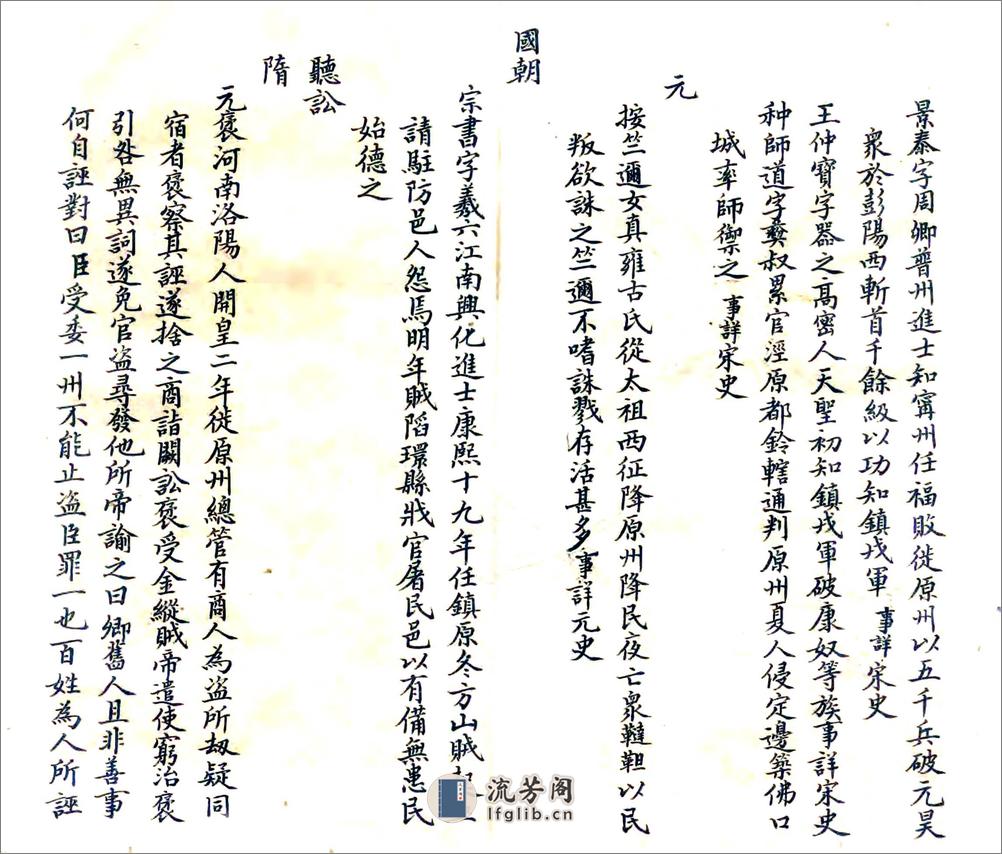 景泰字周卿普州進士知寗州任福敗徙原州以五千兵破元昊
衆於彭陽西斬首千餘級以功知鎮戎軍 事詳宋史
王仲寶字器之髙密人天聖初知鎮戎軍破康奴等族事詳宋史
种師道字彜叔累官涇原都鈐轄通判原州夏人侵定邊築佛口
城率師禦之 事詳宋史
元
按竺邇女真雍古氏從太祖西征降原州降民夜亡衆韃靼以民
叛欲誅之竺邇不嗜誅戮存活甚多事詳元史
國朝
宗書字羲六江南興化進士康熙十九年任鎮原冬方山賊
請駐防邑人怨焉明年賊陷環縣戕官屠民邑以有備無患民
始德之
聽訟
隋
元褒河南洛陽人開皇二年徙原州總管有商人為盜所刼疑同
宿者褒察其誣遂捨之商詣闕訟褒受金縱賊帝遣使窮治褒
引咎無異詞遂免官盜尋發他所帝諭之曰卿舊人且非善事
何自誣對曰臣受委一州不能止盜臣罪一也百姓為人所誣
流芳阁
lfglib.cn